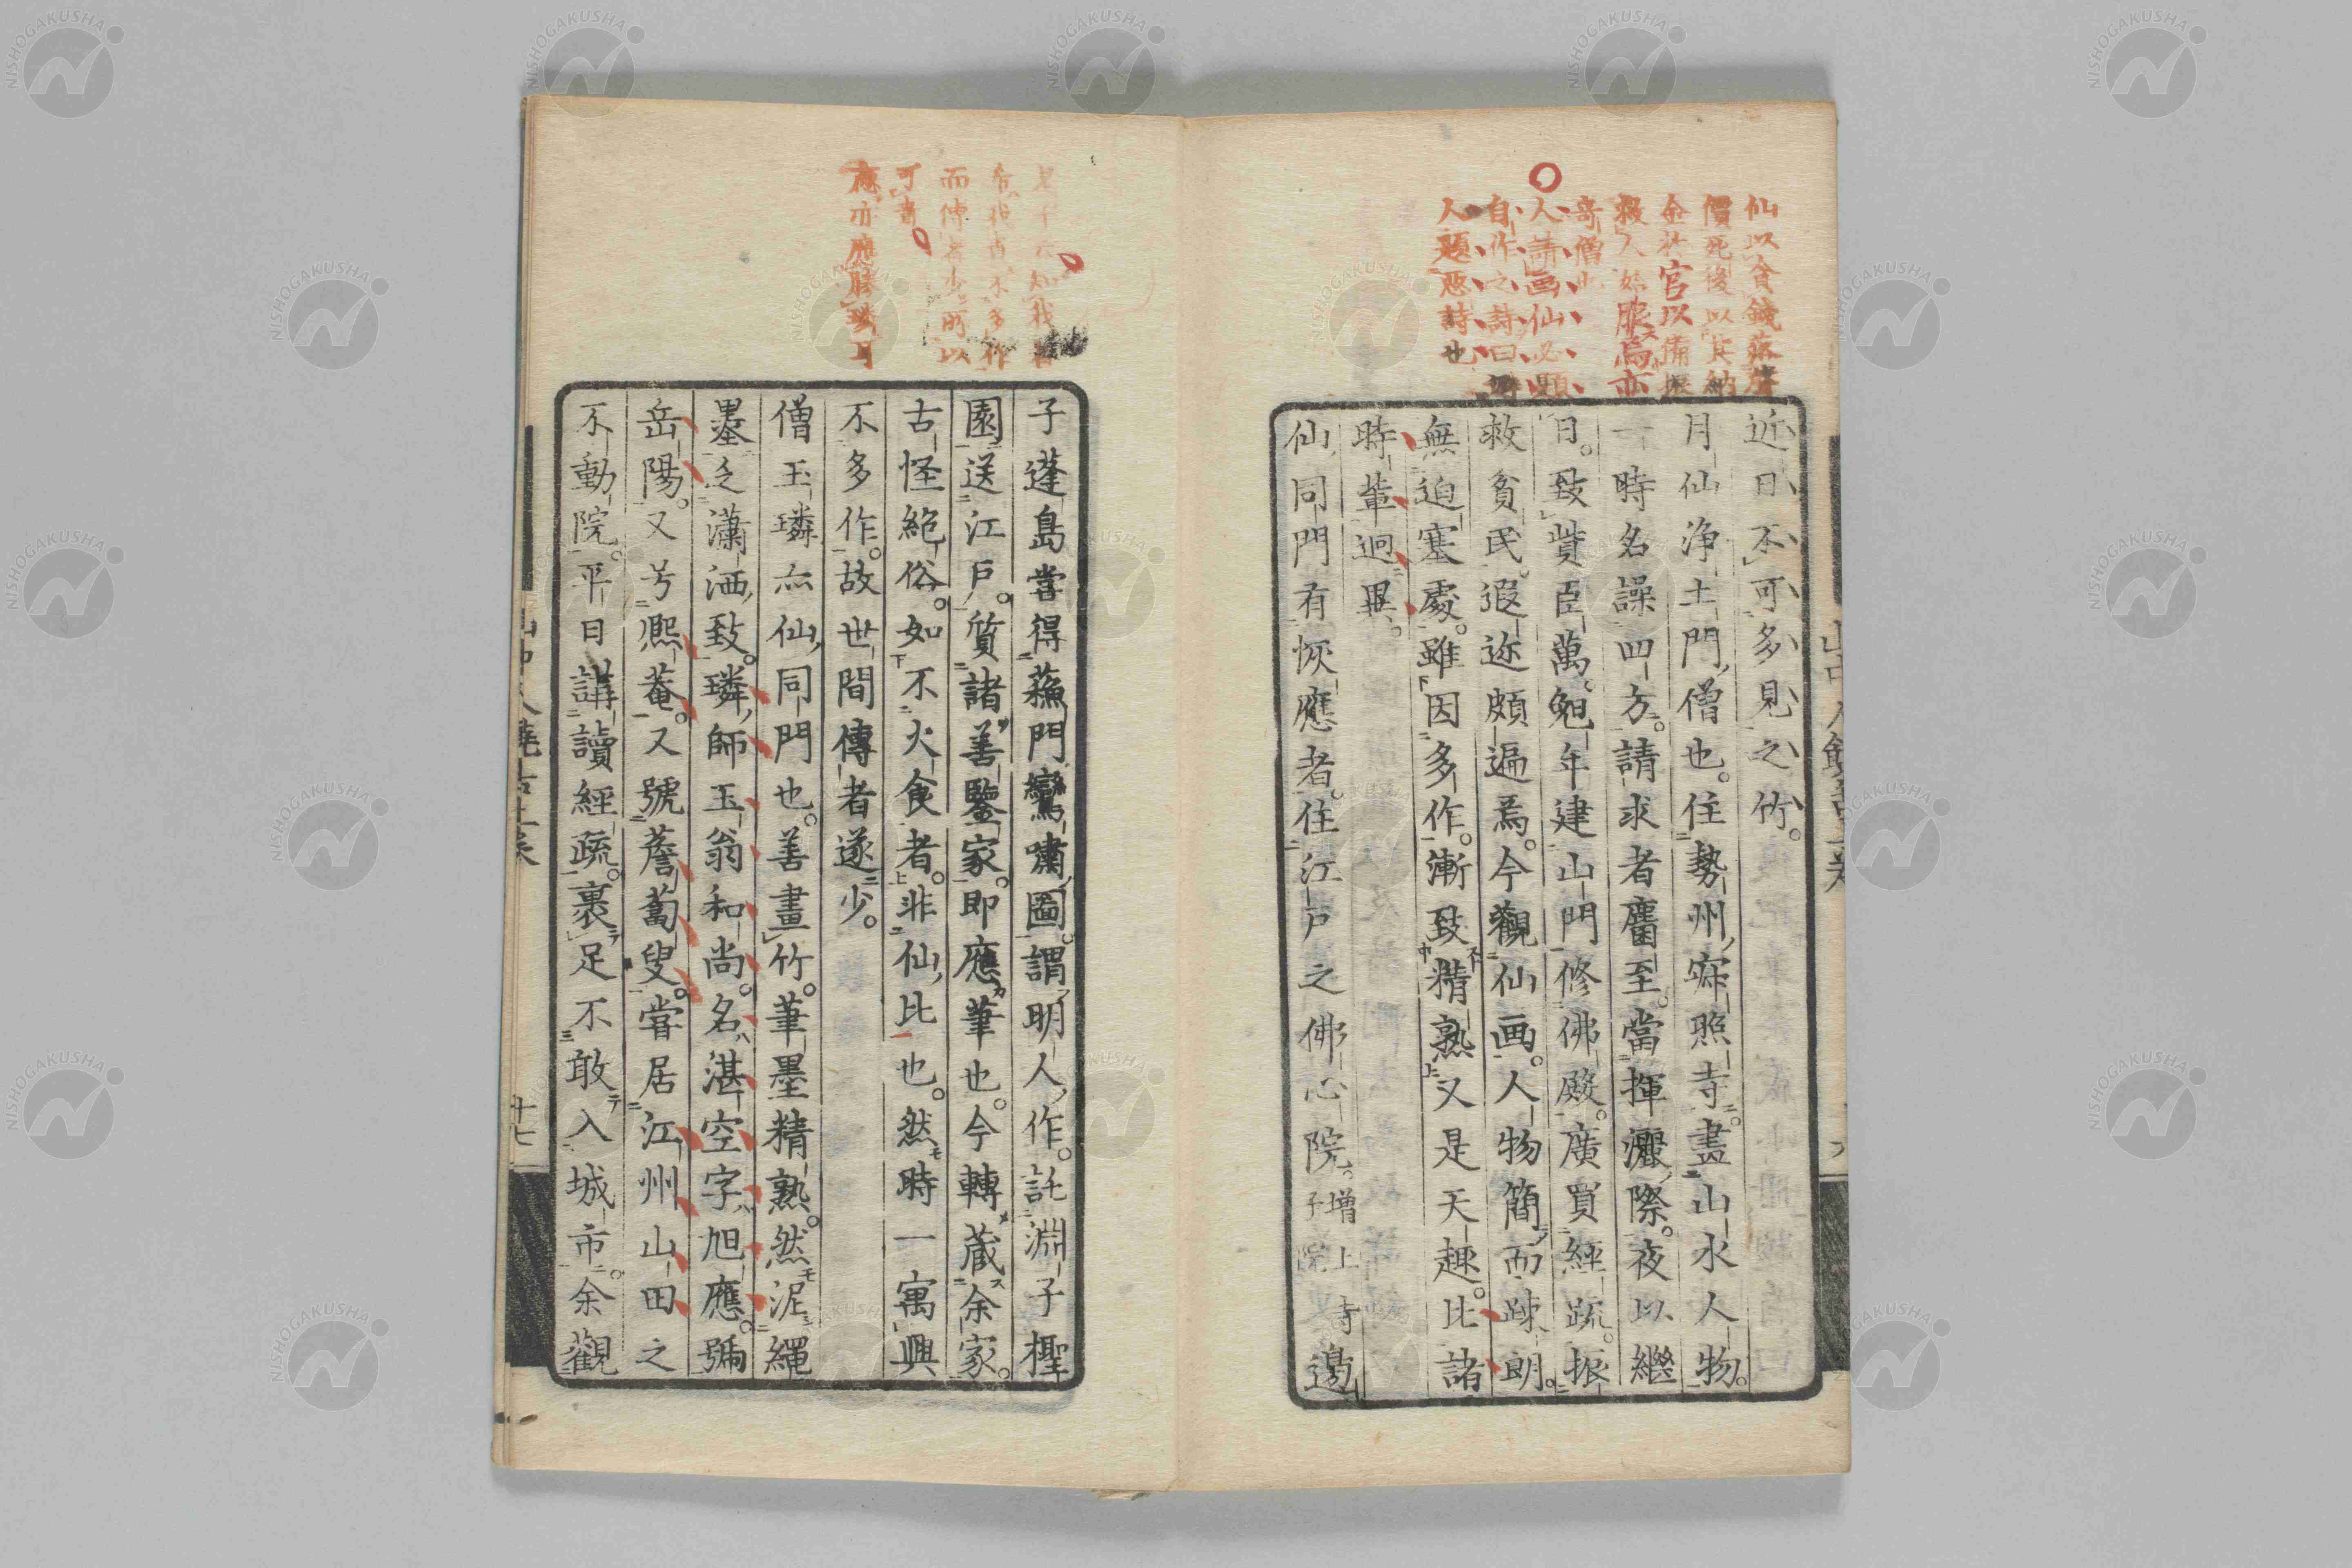 仙以貪錢落
價死後以其納
金於官以備振
救人始服焉亦
奇僧也
人請画仙必題
自作之詩曰
人題悪詩也
近日不可多見之竹。
月仙浄土門僧也。住勢州寂照寺。畫山水人物。
一時名譟四方。請求者麕至。當揮灑際。夜以継
日。致貲巨萬。勉年建山門修佛殿。廣買経疏。振
救貧民。遐迩頗遍焉。今觀仙画。人物簡而踈朗。
無迫塞處。雖因多作。漸致精熟又是天趣。比諸
時輩迥異。
仙同門有恢應者。住江戸之佛心院。増上寺子院邉
子蓬島嘗得蘓門鸞嘯圖。謂明人作。託淵子檉
園。送江戸。質諸善鑒家。即應筆也。今轉蔵余家。
古怪絶俗。如不火食者。非仙比也。然時一寓興
不多作。故世間傳者遂少。
僧玉璘亦仙同門也。善畫竹。筆墨精熟。然泥縄
墨乏瀟洒致。璘師玉翁和尚。名湛空字旭應。號
岳陽。又号熈菴。又號薝蔔叟。嘗居江州山田之
不動院。平日講讀經疏。裹足不敢入城市。余觀
而傳者少所以
可貴
應亦應勝璘耳
十七